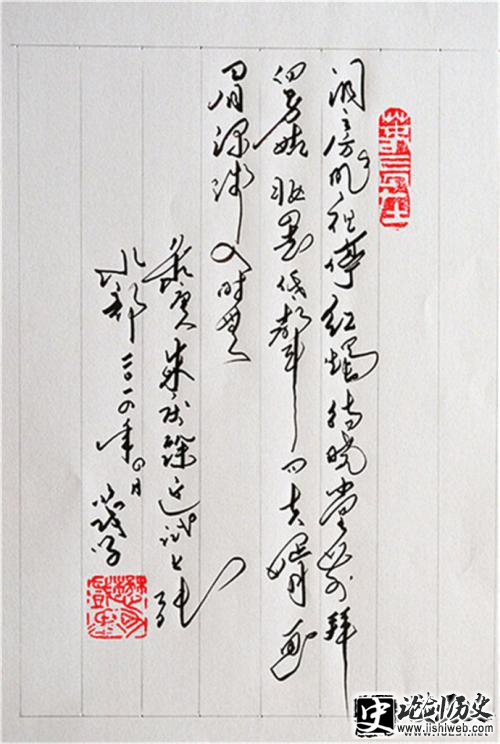 洞房昨夜停红燭待晓堂前拜
舅姑妆罢低声问夫婿画
眉深浅入时无
朱庆馀近试上张
水部二〇一四年四月
史 论剑历史
www.lishiweb.com